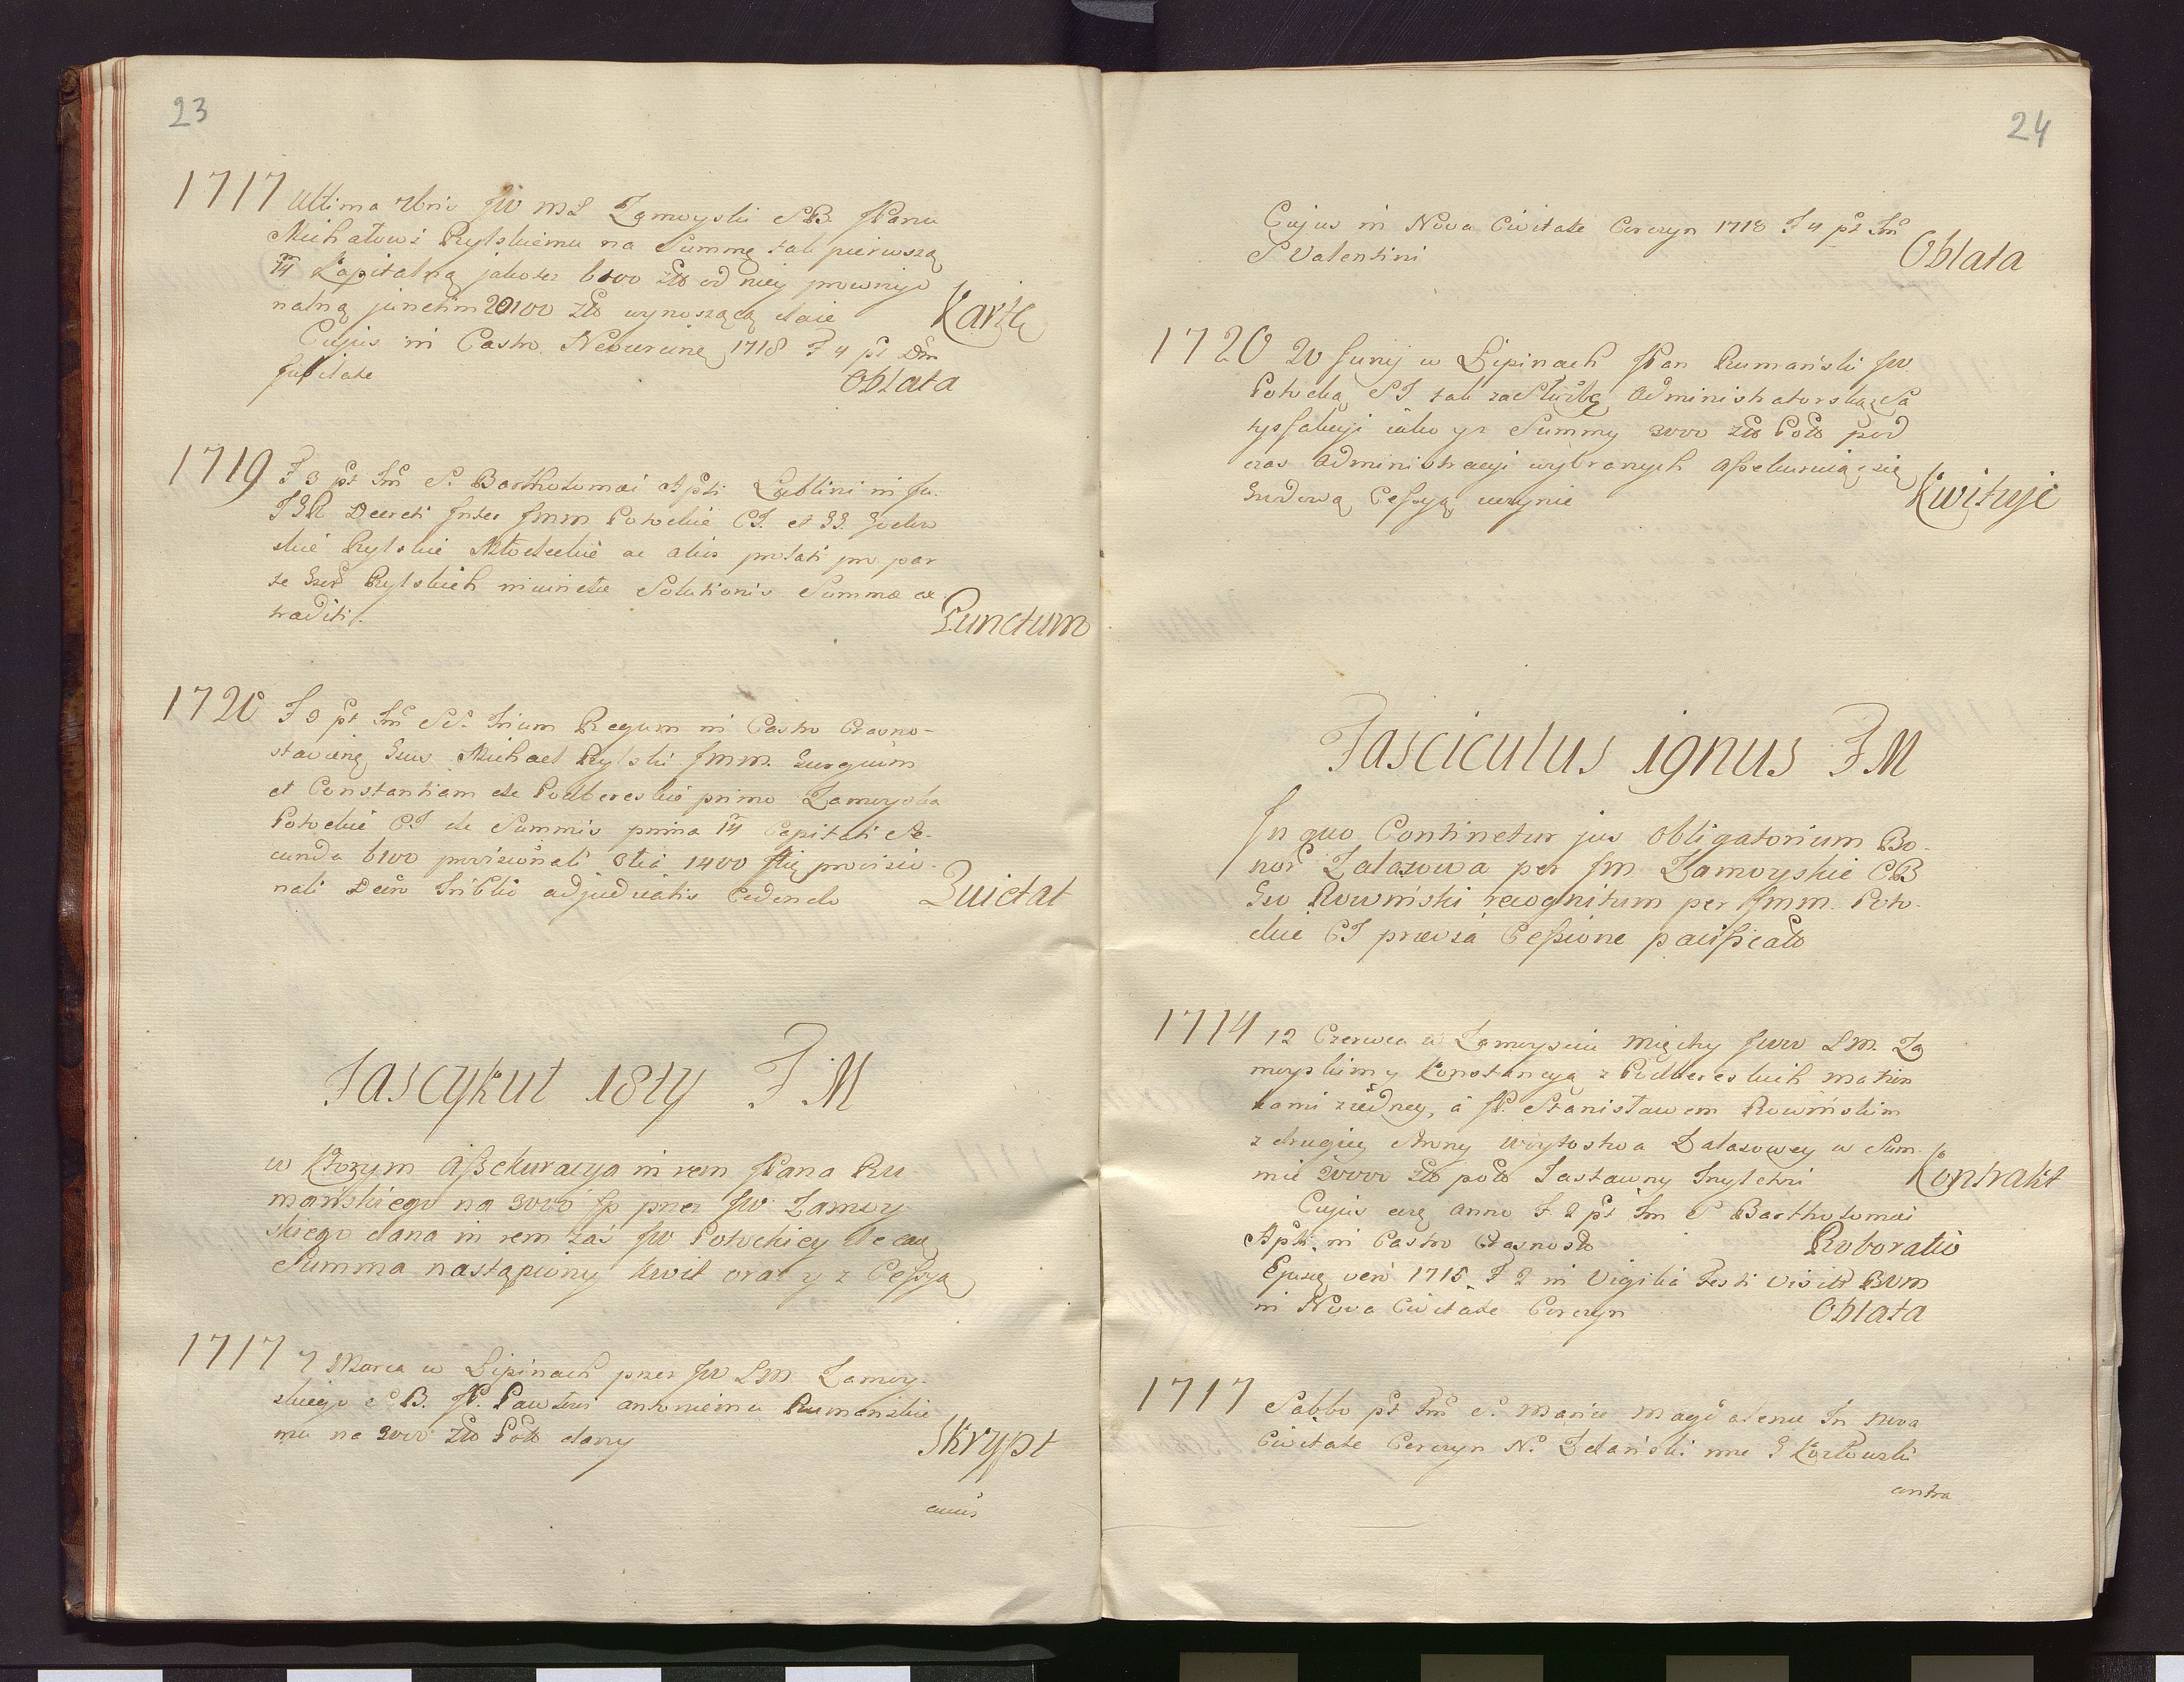 23
1717 Ultima 7bris JW ML Zamoyski SB JPanu
Michałowi Rylskiemu na Summę tak pierwszą
14 Kapitalną jakotez 6100 zło od niey prowizjo
nalną junctim 20100 Zło wynoszącą daie Kartę
Cujus in Castro 1718 F 4 pt Dm
Jubilate Oblata
1719 F 3 pt Fm S. Bartholomæi Apti Lublini in Ju.
TGR Decreti Inter JMM Potockie CJ. et GG.
skie Rylskie ac aliis prolati pro par
te Gser Rylskich Solutionis Summæ ac
traditi. Punctum
1720 F 3 pt Fm SS. Trium Regum in Castro Crasno-
stavieng Gsus Michael Rylski JMM.
et Constantiam de Podbereskie primo Zamoyska
Potockie CJ de Summis prima 14 Capitali Se-
cunda 6100 provisionali 3tia 1400 provisio-
nali Decro Triblis adjudicatis Cedendo Quietat
Fascykuł 18ty F. M
w Ktorym Assekuracya in rem JPana Ru-
mańskiego na 3000 fp przez JW Zamoy
skiego dana in rem Zaś JW Potockiey de eadę
Summa nastąpiony kwit oraz y z Cessyą
1717 7 Marca w Lipinach przez JW LM Zamoy-
skiego S.B. JP. Pawłowi antoniemu Rumańskie
mu na 3000 Zło Polo dany Skrypt
cuius
24
Cujus in Nova Civitate Corczyn 1718 F 4 pt Fm
S Valentini Oblata
1720 20 Junij w Lipinach JPan Rumański JW.
Potocką SJ tak za Służbę Administratorską Sa
tysfakcji iako yz Summy 3000 Zło Polo pod
czas Administracyi wybranych
Grodową Cessyą uczynie Kwituje
Fasciculus 19nus F M
In quo Continetur jus Obligatorium Bo-
nor Zalazowa per JM. Zamoyskie CB
Gso Rowiński recognitum per JMM. Poto-
ckie CJ prævia Cessione pacificato
1714 12 Czerwca w Zamościu między JWW LM. Za
moyskimy Konstancyą z Podbereskich małżon
kami z iedney, á JP. Stanisławem Rowińskim
z drugiey strony wóytostwa Zalasowey w Sum-
mie 20000 Zło polo Zastawny Kontrakt
Cujus anno F. 2 pt Fm S Bartholomæi
Apti in Castro Crasnosto Roboratio
Ejusq vero 1715 F 2 in Vigilia Festi Visito BVM
in Nova Civitate Corczyn Oblata
1717 Sabbo pt Fm S. Mariæ Magdalenæ In Nova
Civitate Corczyn N. Zdański nne G Kozłowski
contra